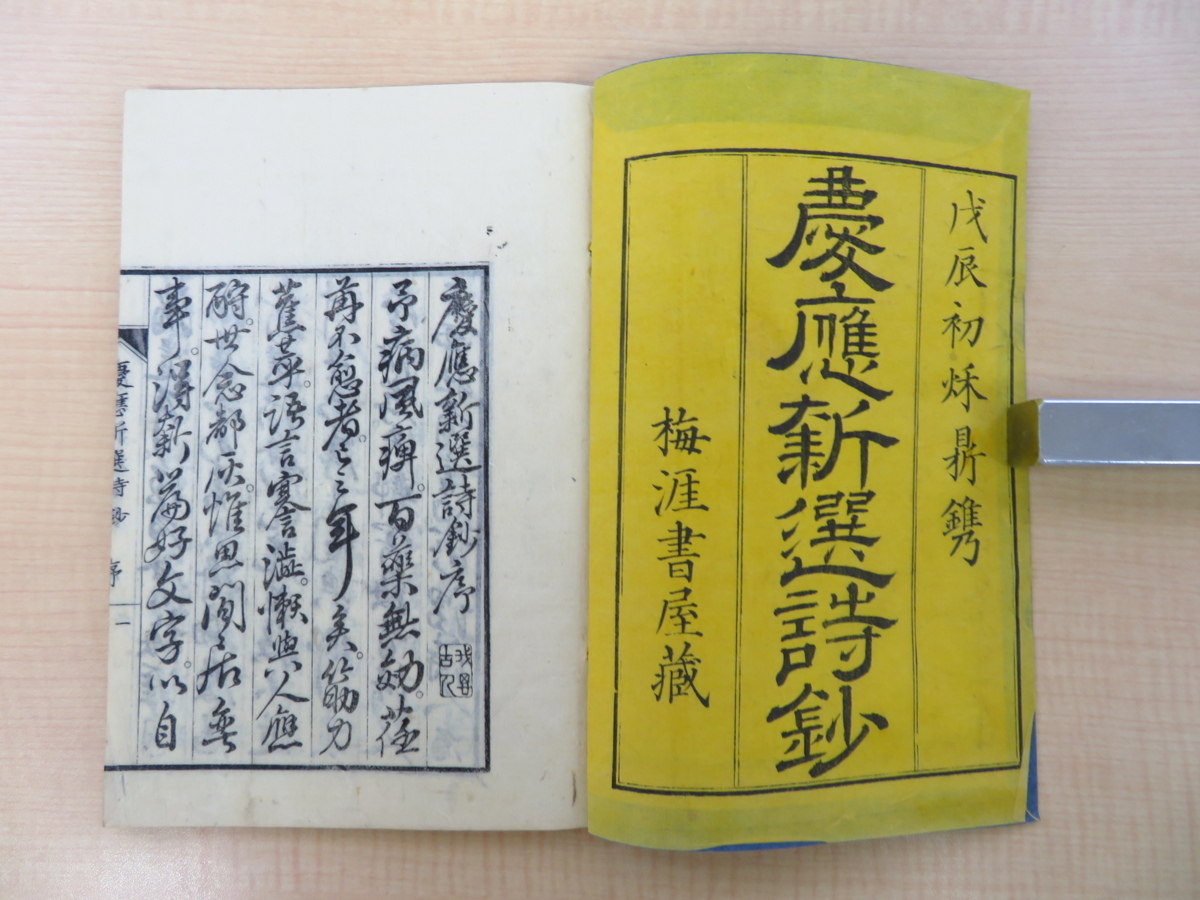 戊辰初烁鼎鐫
慶應新選詩鈔
梅涯書屋藏
慶應新選詩鈔序
予病風痺。百藥無効。荏
苒不愈者三年矣。筋力
蕉萃。語言蹇澁。懶與人應
酬。世念都灰。惟思閒居無
事。得新篇好文字。以自
慶應新選詩鈔 序 一